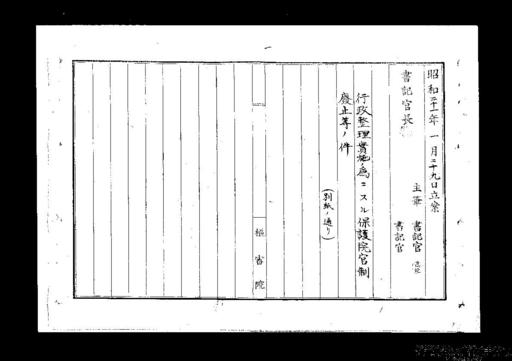 昭和二十一年一月二十九日立案
主筆 書記官
書記官長
書記官
行政整理實施ノ爲ニスル保護院官制
廢止等ノ件
(別紙ノ通リ)
樞密院